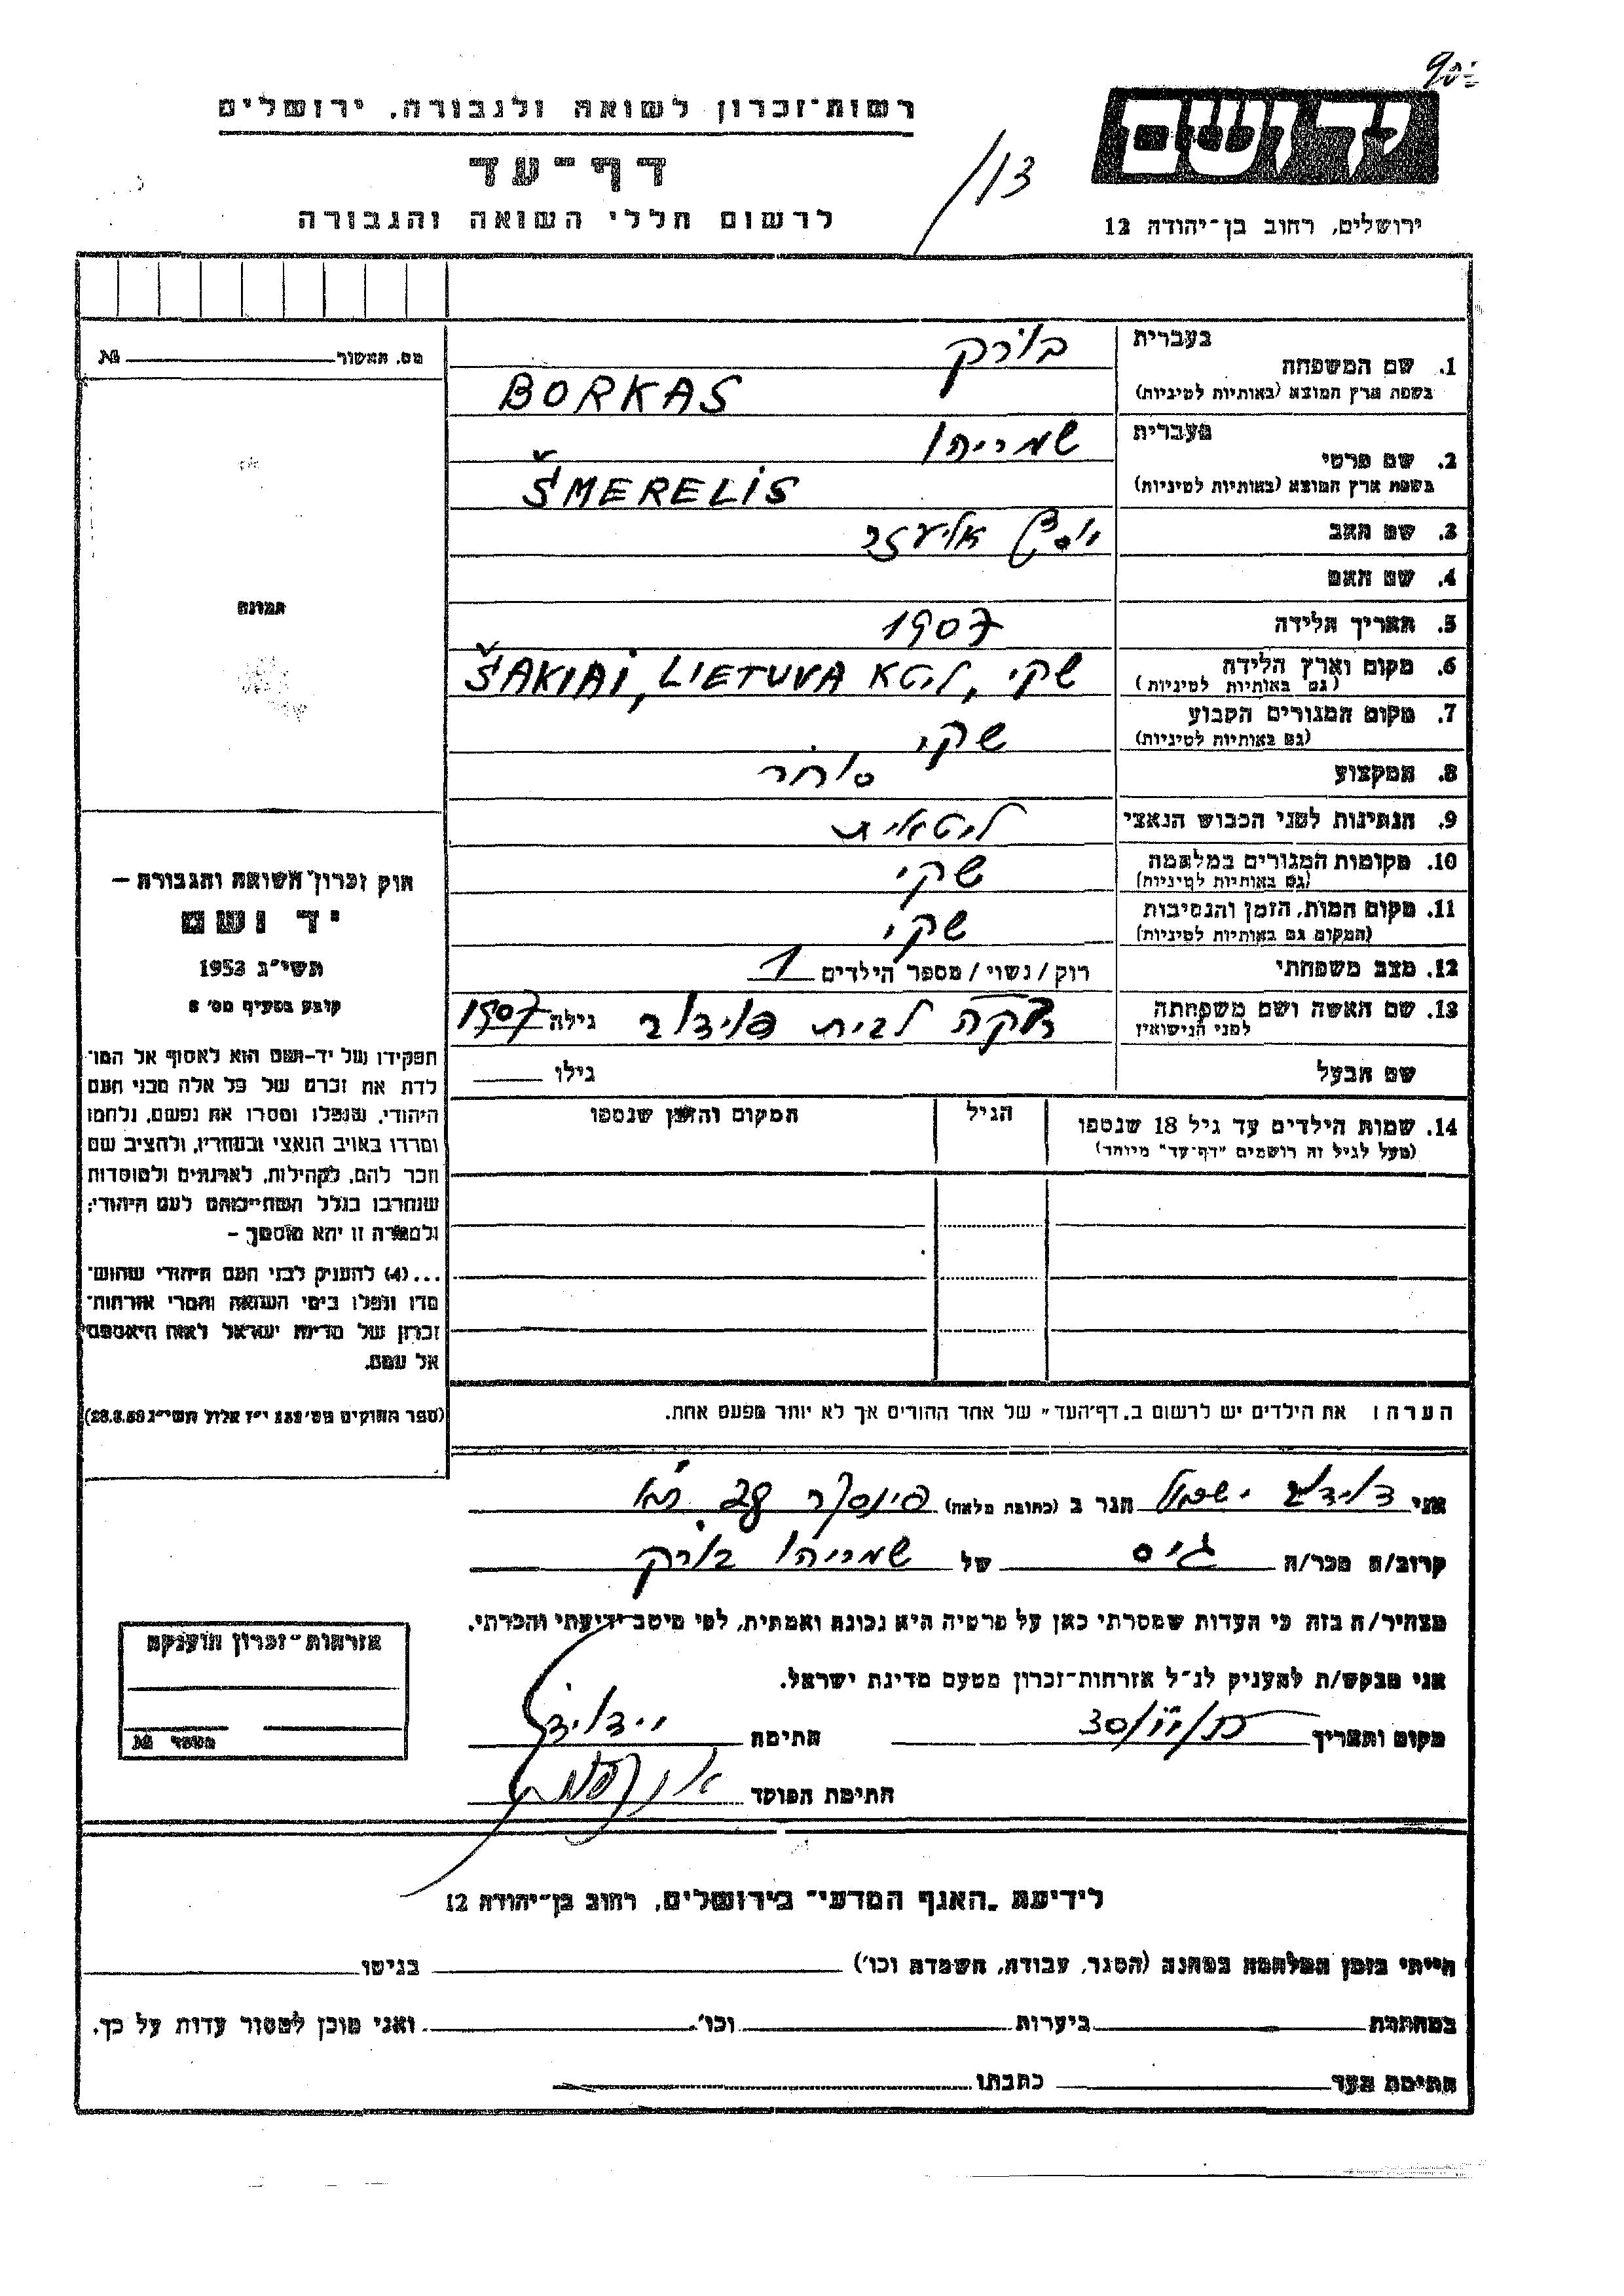 רשות־זכרון לשואה ולגבורה, ירושלים
יד ושם
דף־עד
/13
לרשום חללי השואה והגבורה
ירושלים, רחוב בן־יהודה 12
מס. האשור № 
בעברית בורק
1. שם המשפחה
בשפת ארץ המוצא (באותיות לטיניות) BORKAS
בעברית שמריהו
2. שם פרטי
בשפת ארץ המוצא (באותיות לטיניות) ŠMERELIS
3. שם האב יוסף אליעזר
4. שם האם
5. תאריך הלידה 1907
6. מקום וארץ הלידה שקי, ליטא ŠAKIAI, LIETUVA
(גם באותיות לטיניות)
7. מקום המגורים הקבוע שקי
(גם באותיות לטיניות)
8. המקצוע סוחר
9. הנתינות לפני הכבוש הנאצי ליטאית
10. מקומות המגורים במלחמה שקי
(גם באותיות לטיניות)
11. מקום המות, הזמן והנסיבות שקי
(המקום גם באותיות לטיניות)
12. מצב משפחתי רוק/נשוי/מספר הילדים 1
13. שם האשה ושם משפחתה לבית גילה 1907
לפני הנישואין
שם הבעל גילו
14. שמות הילדים עד גיל 18 שנספו הגיל המקום והזמן שנספו
(מעל לגיל זה רושמים "דף־עד" מיוחד)
הערה: את הילדים יש לרשום ב„דף־העד" של אחד ההורים אך לא יותר מפעם אחת.
תמונה
חוק זכרון השואה והגבורה –
יד ושם
תשי"ג 1953
קובע בסעיף מס' 2
תפקידו של יד־ושם הוא לאסוף אל המו־
לדת את זכרם של כל אלה מבני העם
היהודי, שנפלו ומסרו את נפשם, נלחמו
ומרדו באויב הנאצי ובעוזריו, ולהציב שם
וזכר להם, לקהילות, לארגונים ולמוסדות
שנחרבו בגלל השתייכותם לעם היהודי;
ולמטרה זו יהא מוסמך –
...(4) להעניק לבני העם היהודי שהוש־
מדו ונפלו בימי השואה והמרי אזרחות־
זכרון של מדינת ישראל לאות היאספם
אל עמם.
(ספר החוקים מס' 132 י"ז אלול תשי"ג 28.8.53)
אני הגר ב (כתובת מלאה) פינסקר 28
קרוב/ה מכר/ה גיס של שמריהו בורק
מצהיר/ה בזה כי העדות שמסרתי כאן על פרטיה היא נכונה ואמתית, לפי מיטב ידיעתי והכרתי.
אני מבקש/ת להעניק לנ"ל אזרחות־זכרון מטעם מדינת ישראל.
מקום ותאריך חתימה
חתימת הפוקד
אזרחות־זכרון הוענקה
מספר №
לידיעת „האגף המדעי" בירושלים, רחוב בן־יהודה 12
הייתי בזמן המלחמה במחנה (הסגר, עבודה, השמדה וכו') בגיטו
במחתרת ביערות וכו' ואני מוכן למסור עדות על כך.
חתימת העד כתבתו